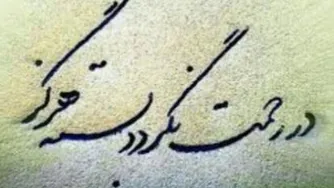 در رحمت نگردد بسته هرگز